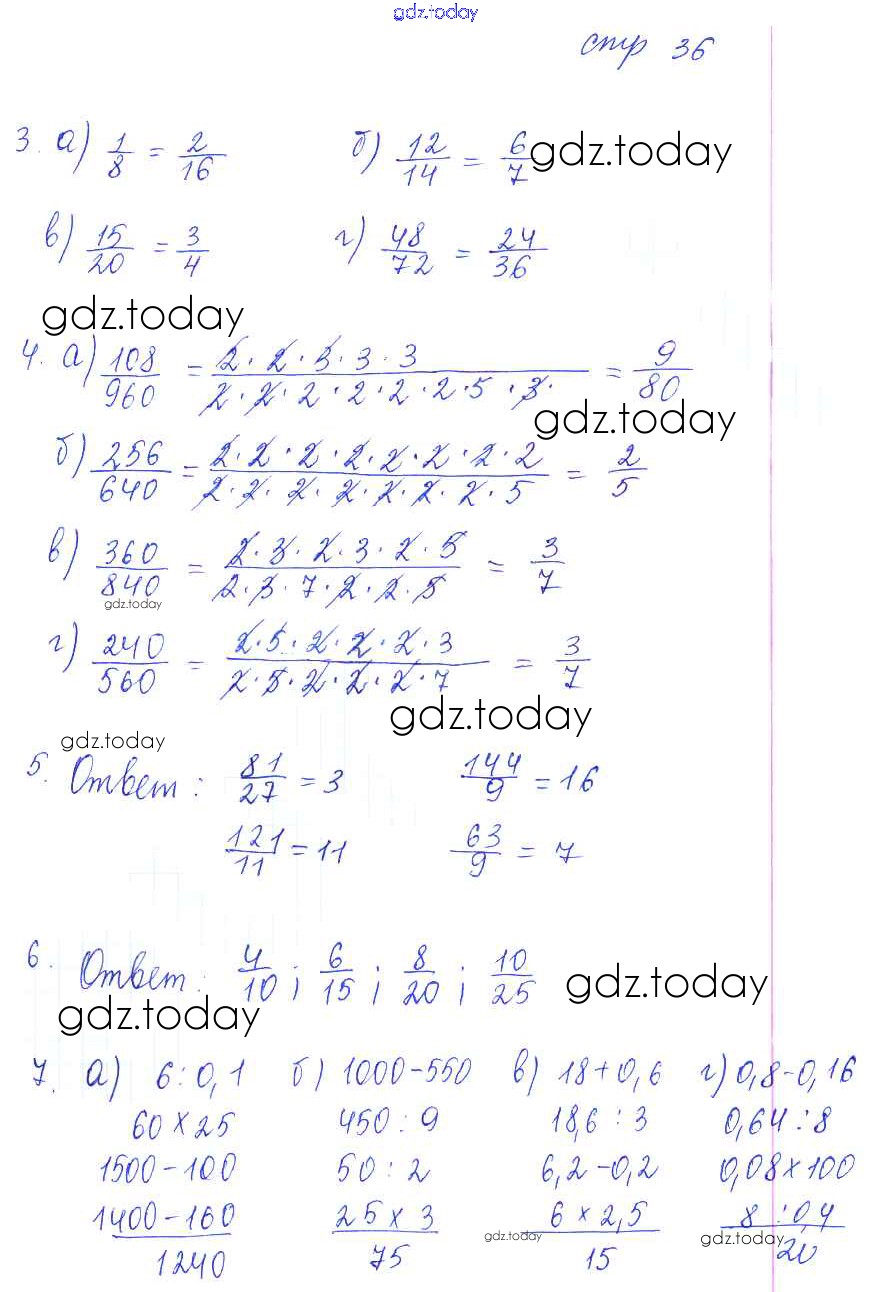 gdz.today
стр 36
3. а) 1/8 = 2/16 б) 12/14 = 6/7 gdz.today
в) 15/20 = 3/4 г) 48/72 = 24/36
gdz.today
4. а) 108/960 = 2·2·3·3·3 / 2·2·2·2·2·2·5·3· = 9/80
gdz.today
б) 256/640 = 2·2·2·2·2·2·2·2 / 2·2·2·2·2·2·2·5 = 2/5
в) 360/840 = 2·3·2·3·2·5 / 2·3·7·2·2·5 = 3/7
gdz.today
г) 240/560 = 2·5·2·2·2·3 / 2·5·2·2·2·7 = 3/7
gdz.today
gdz.today
5. Ответ: 81/27 = 3 144/9 = 16
121/11 = 11 63/9 = 7
6. Ответ: 4/10; 6/15; 8/20; 10/25 gdz.today
gdz.today
7. а) 6:0,1 б) 1000-550 в) 18+0,6 г) 0,8-0,16
60×25 450:9 18,6:3 0,64:8
1500-100 50:2 6,2-0,2 0,08×100
1400-160 25×3 6×2,5 8:0,4
gdz.today gdz.today
1240 75 15 20